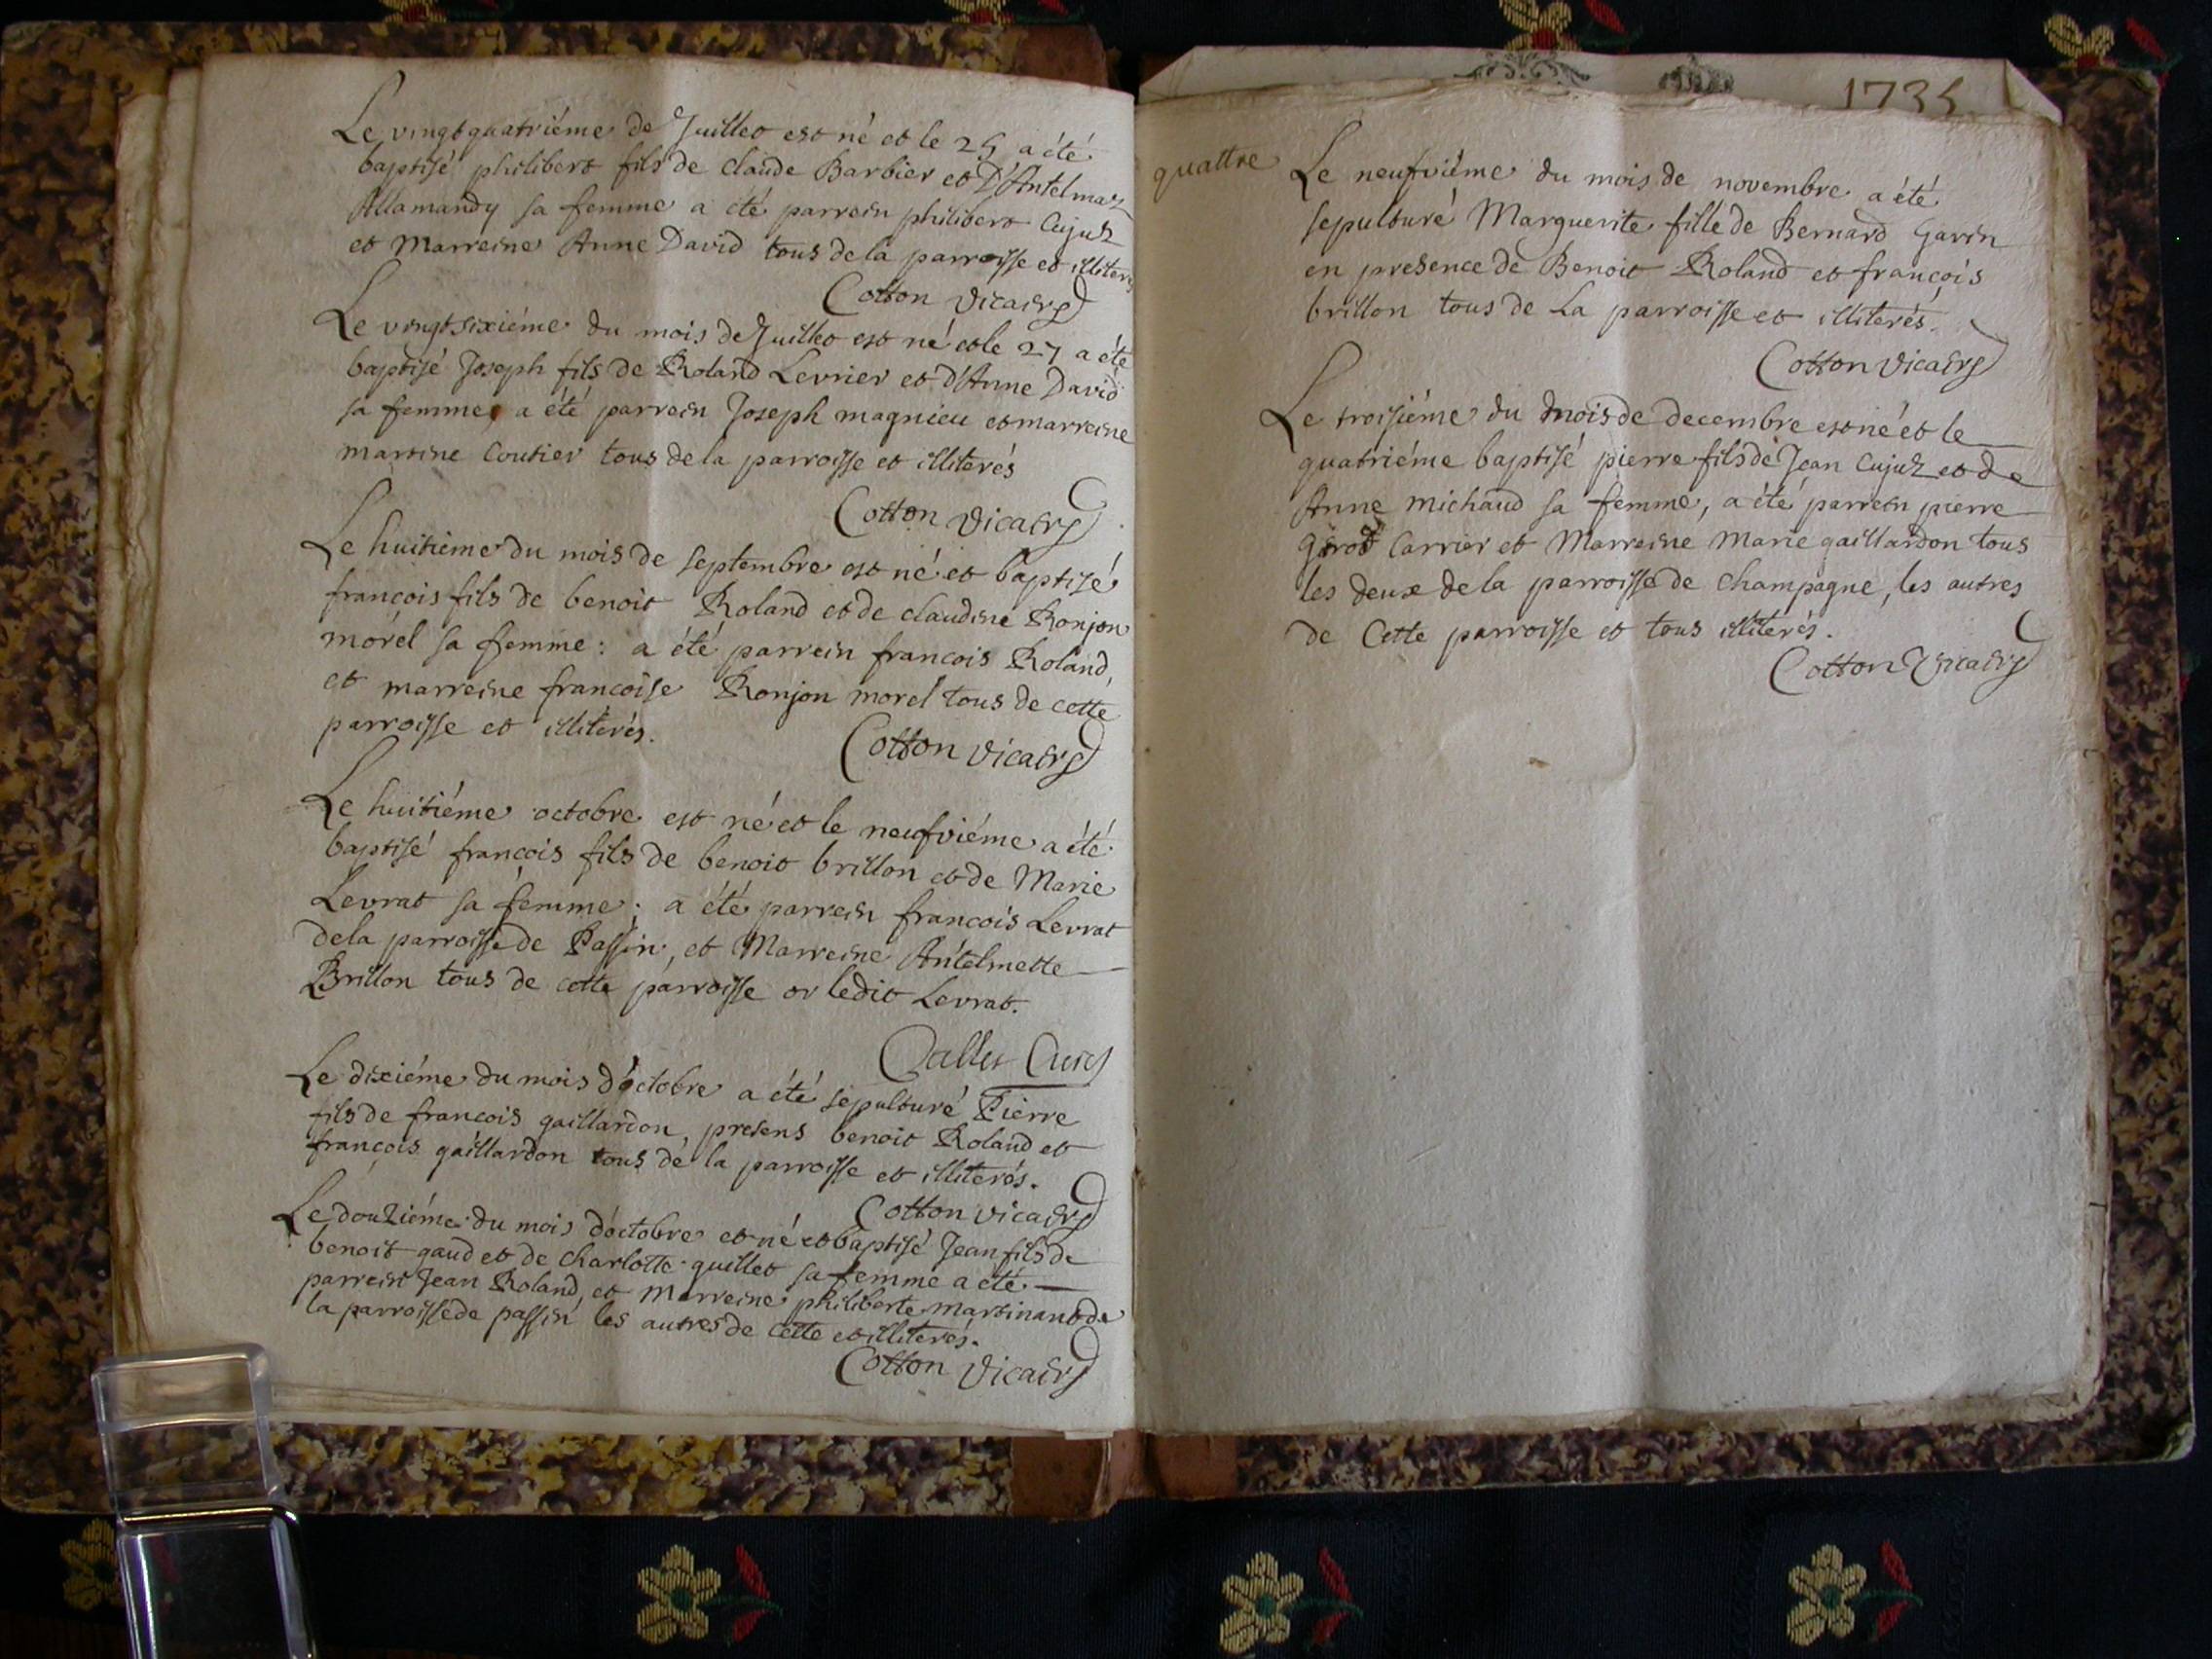 Le vingtquatriéme de Juillet est né et le 25 a été
baptisé philibert fils de claude Barbier et D'Antelmaz
Allamandy sa femme a été parrein philibert Cujuz
et Marreine Anne David tous de la parroisse et illiterés
Cotton vicaire
Le vingtsixiéme du mois de Juillet est né et le 27 a été
baptisé Joseph fils de Roland Levrier et d'Anne David
sa femme a été parrein Joseph magnieu et marreine
martine Coutier tous de la parroisse et illiterés
Cotton vicaire
Le huitiéme du mois de septembre est né et baptisé
francois fils de benoit Roland et de claudine Ronjon
morel sa femme : a été parrein francois Roland,
et marreine francoise Ronjon morel tous de cette
parroisse et illiterés.
Cotton vicaire
Le huitiéme octobre est né et le neufviéme a été
baptisé francois fils de benoit brillon et de Marie
Levrat sa femme : a été parrein francois Levrat
de la parroisse de Passin, et Marreine Antelmette
Brillon tous de cette parroisse or ledit Levrat.
Curé
Le dixiéme du mois d'octobre a été sepulturé Pierre
fils de francois gaillardon, presens benoit Roland et
francois gaillardon tous de la parroisse et illiterés.
Cotton vicaire
Le douziéme du mois d'octobre est né et baptisé Jean fils de
benoit gaud et de charlotte guillet sa femme a été
parrein Jean Roland, et Marreine philiberte martinant de
la parroisse de passin les autres de cette et illiterés.
Cotton vicaire
1735
quattre
Le neufviéme du mois de novembre a été
sepulturé Marguerite fille de Bernard Gavin
en presence de Benoit Roland et francois
brillon tous de La parroisse et illiterés.
Cotton vicaire
Le troisiéme du mois de decembre est né et le
quatriéme baptisé pierre fils de Jean Cujuz et de
Anne michaud sa femme, a été parrein pierre
Carrier et Marreine Marie gaillardon tous
les deux de la parroisse de Champagne, les autres
de Cette parroisse et tous illiterés.
Cotton Vicaire